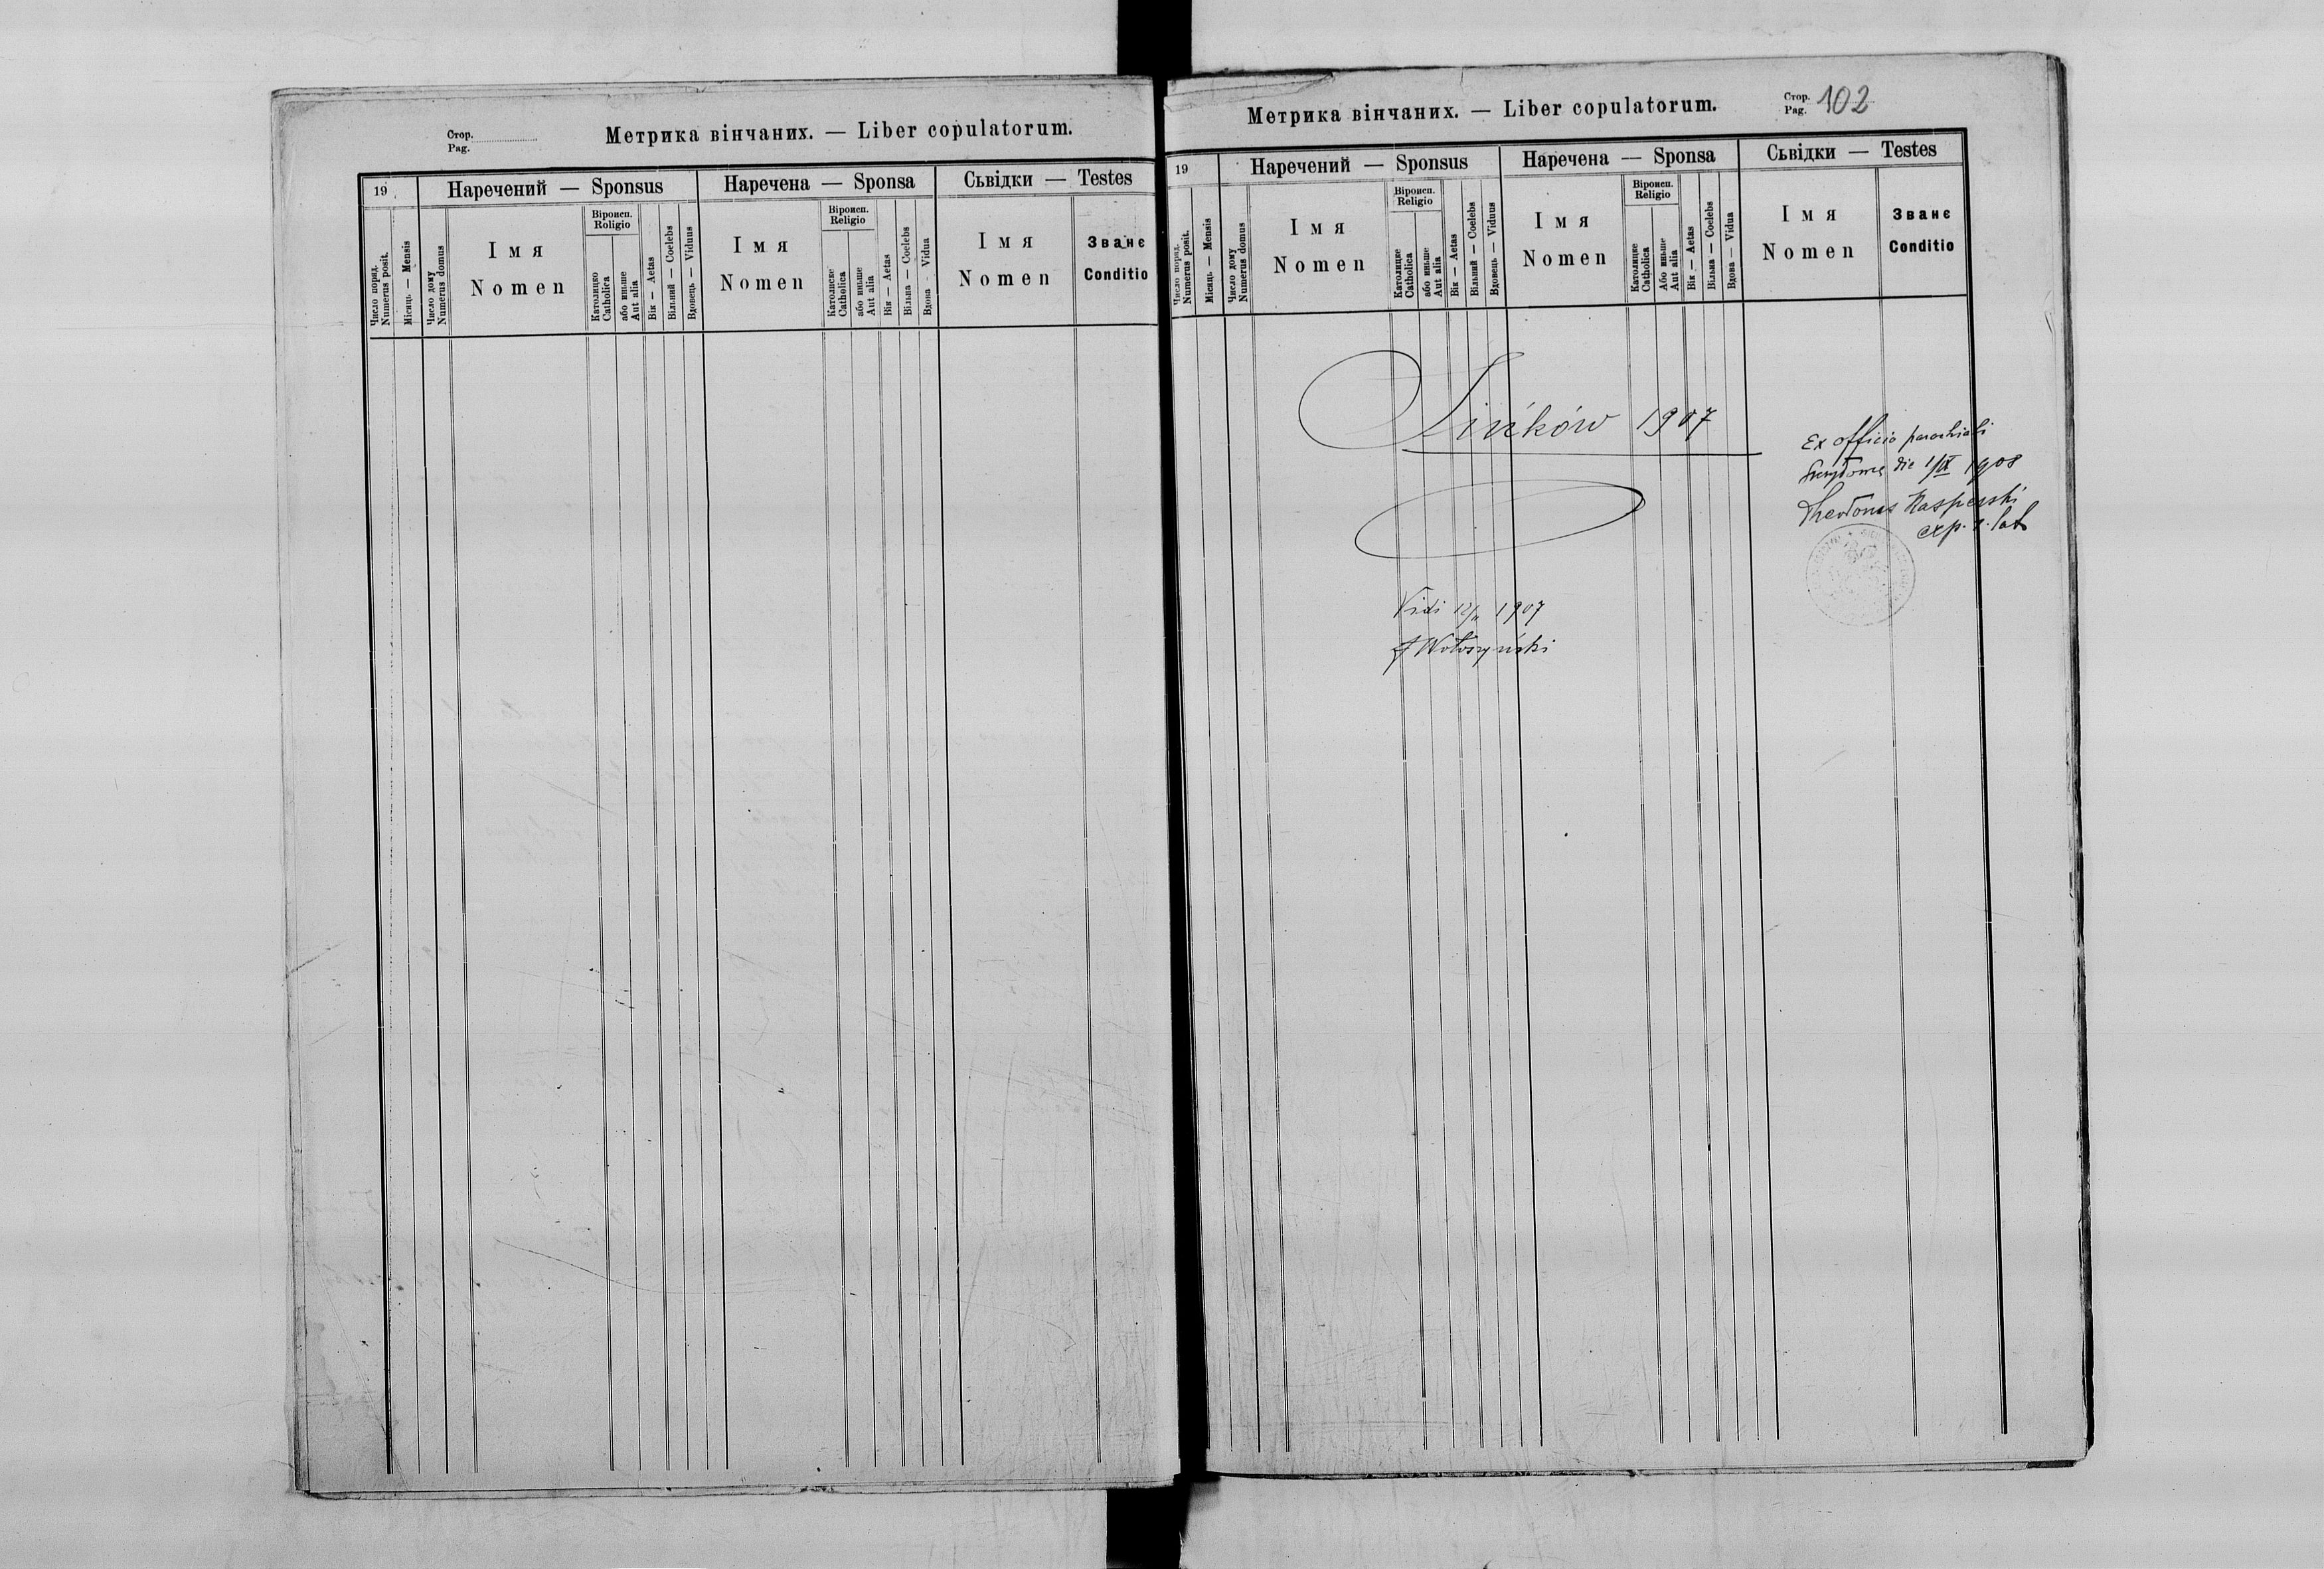 Стор.
Pag.
Метрика вінчаних. — Liber copulatorum.
19
Наречений — Sponsus
Наречена — Sponsa
Сьвідки — Testes
Число поряд.
Numerus posit.
Місяць — Mensis
Число дому
Numerus domus
Імя
Nomen
Віроисп.
Religio
Католицке
Catholica
або иньше
Aut alia
Вік — Aetas
Вільний — Coelebs
Вдовець — Viduus
Імя
Nomen
Віроисп.
Religio
Католиске
Catholica
або иньше
Aut alia
Вік — Aetas
Вільна — Coelebs
Вдова Vidua
Імя
Nomen
Званє
Conditio
Метрика вінчаних. — Liber copulatorum.
Стор.
Pag.
102
19
Наречений — Sponsus
Наречена — Sponsa
Сьвідки — Testes
Число поряд.
Numerus posit.
Місяць — Mensis
Число дому
Numerus domus
Імя
Nomen
Віроисп.
Religio
Католицке
Catholica
або иньше
Aut alia
Вік — Aetas
Вільний — Coelebs
Вдовець — Viduus
Імя
Nomen
Віроисп.
Religio
Католицке
Catholica
Або иньше
Aut alia
Вік — Aetas
Вільна — Coelebs
Вдова — Vidua
Імя
Nomen
Званє
Conditio
1907
Ex officio parochiali
die 1/IX 1908
Theodorus Kasperski
exp. r. lat
Vidi 12/11 1907
Wołoszyński